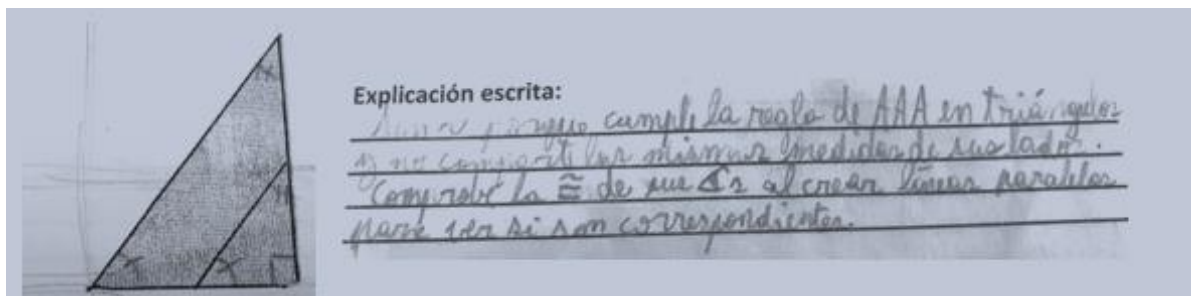 Explicación escrita:
porque cumple la regla de AAA en triángulos
y no comparte las mismas medidas de sus lados.
Comprobé la ≅ de sus ∡s al crear líneas paralelas
para ver si son correspondientes.